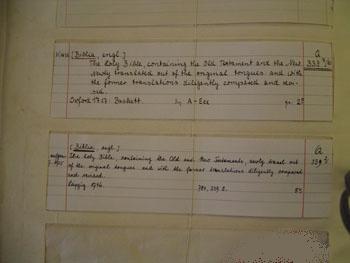 [Biblia, engl.]
The Holy Bible, containing the Old Testament and the New
newly translated out of the original tongues and with
the former translations diligently compared and revi-
sed.
Oxford Baskett. A-Eee 2°
A
[Biblia, engl.]
The Holy Bible, containing the Old and New Testaments, newly transl. out
of the original tongues and with the former translations diligently compared
and revised.
Leipzig 8°
A